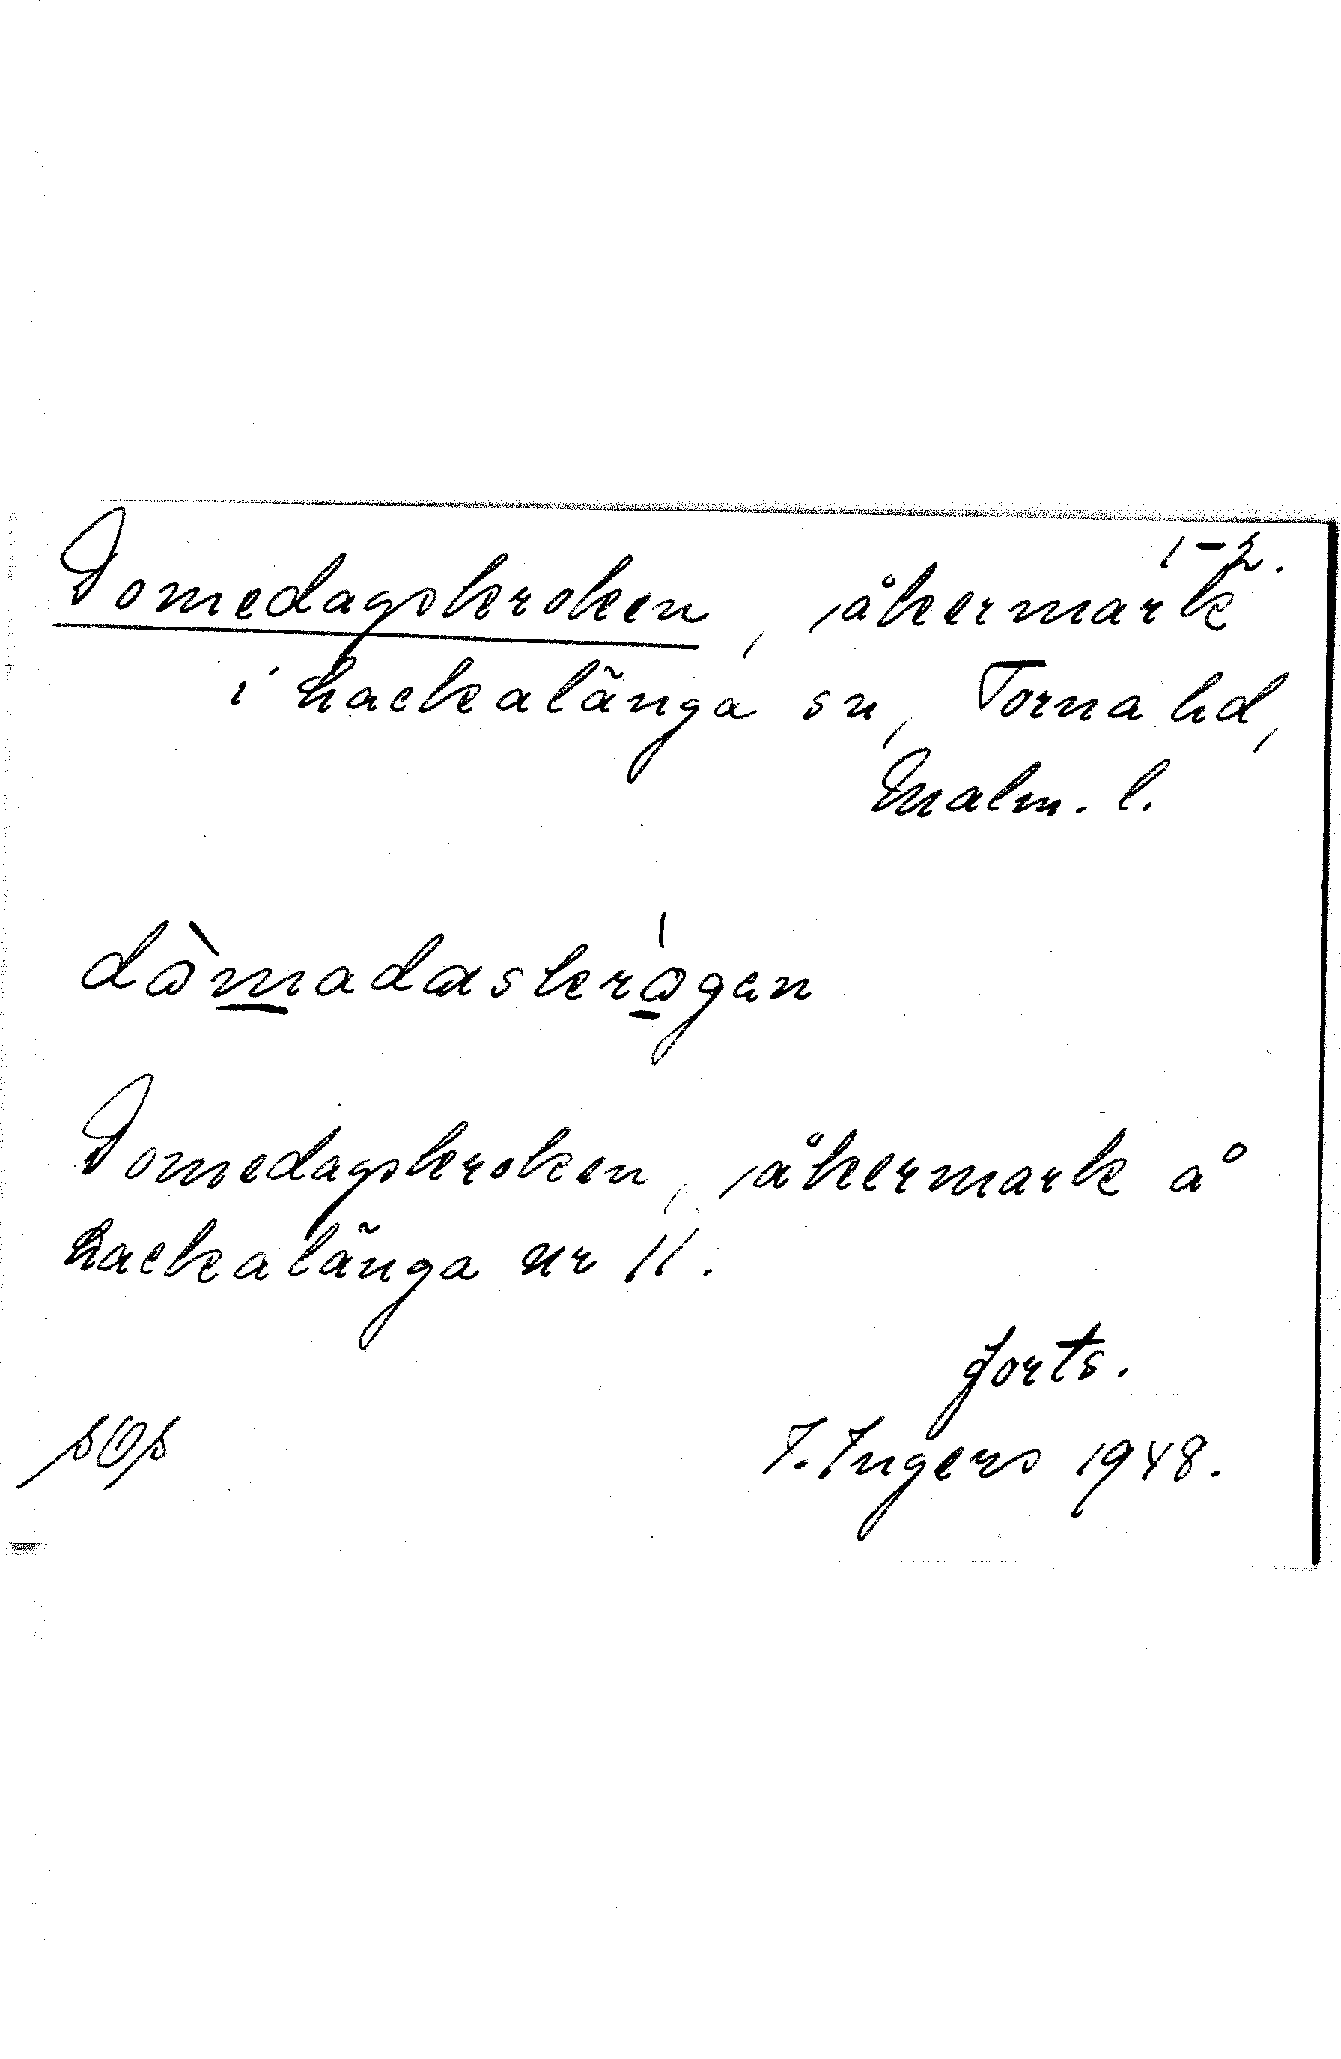 1-2.
Domedagskroken, åkermark
i hackalänga sn, Torna hd,
Malm. l.
dòmadaskrògen
Domedagskroken, åkermark å
hackalänga nr 11.
forts.
I. Ingers 1948.